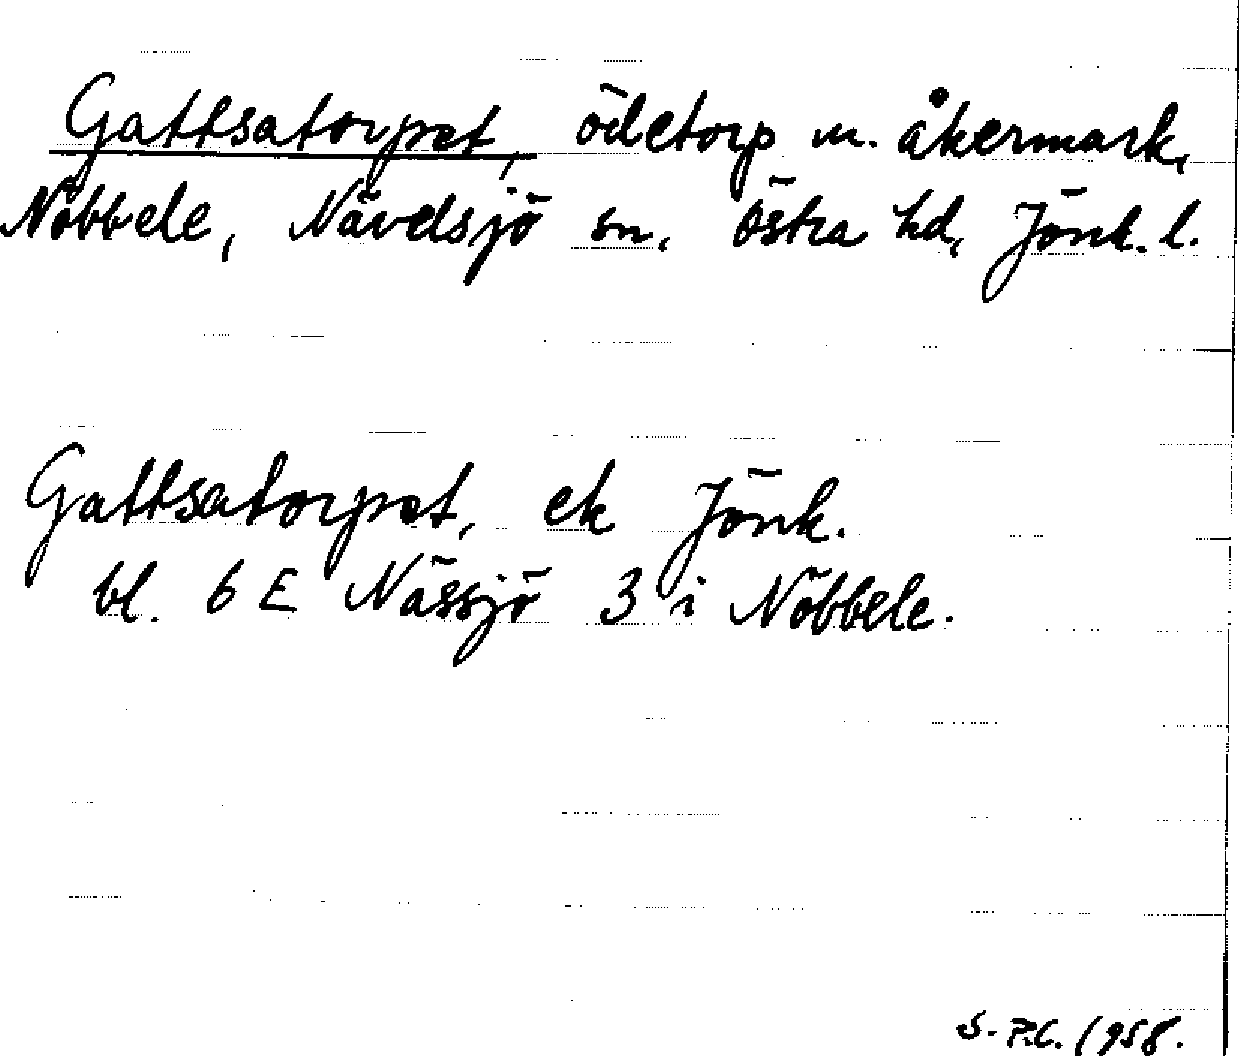 Gattsatorpet, ödetorp m. åkermark,
Nöbbele, Nävelsjö sn, Östra hd, Jönk. l.
Gattsatorpet, ek Jönk.
bl. 6 E Nässjö 3 i Nöbbele.
S-P.C. 1958.